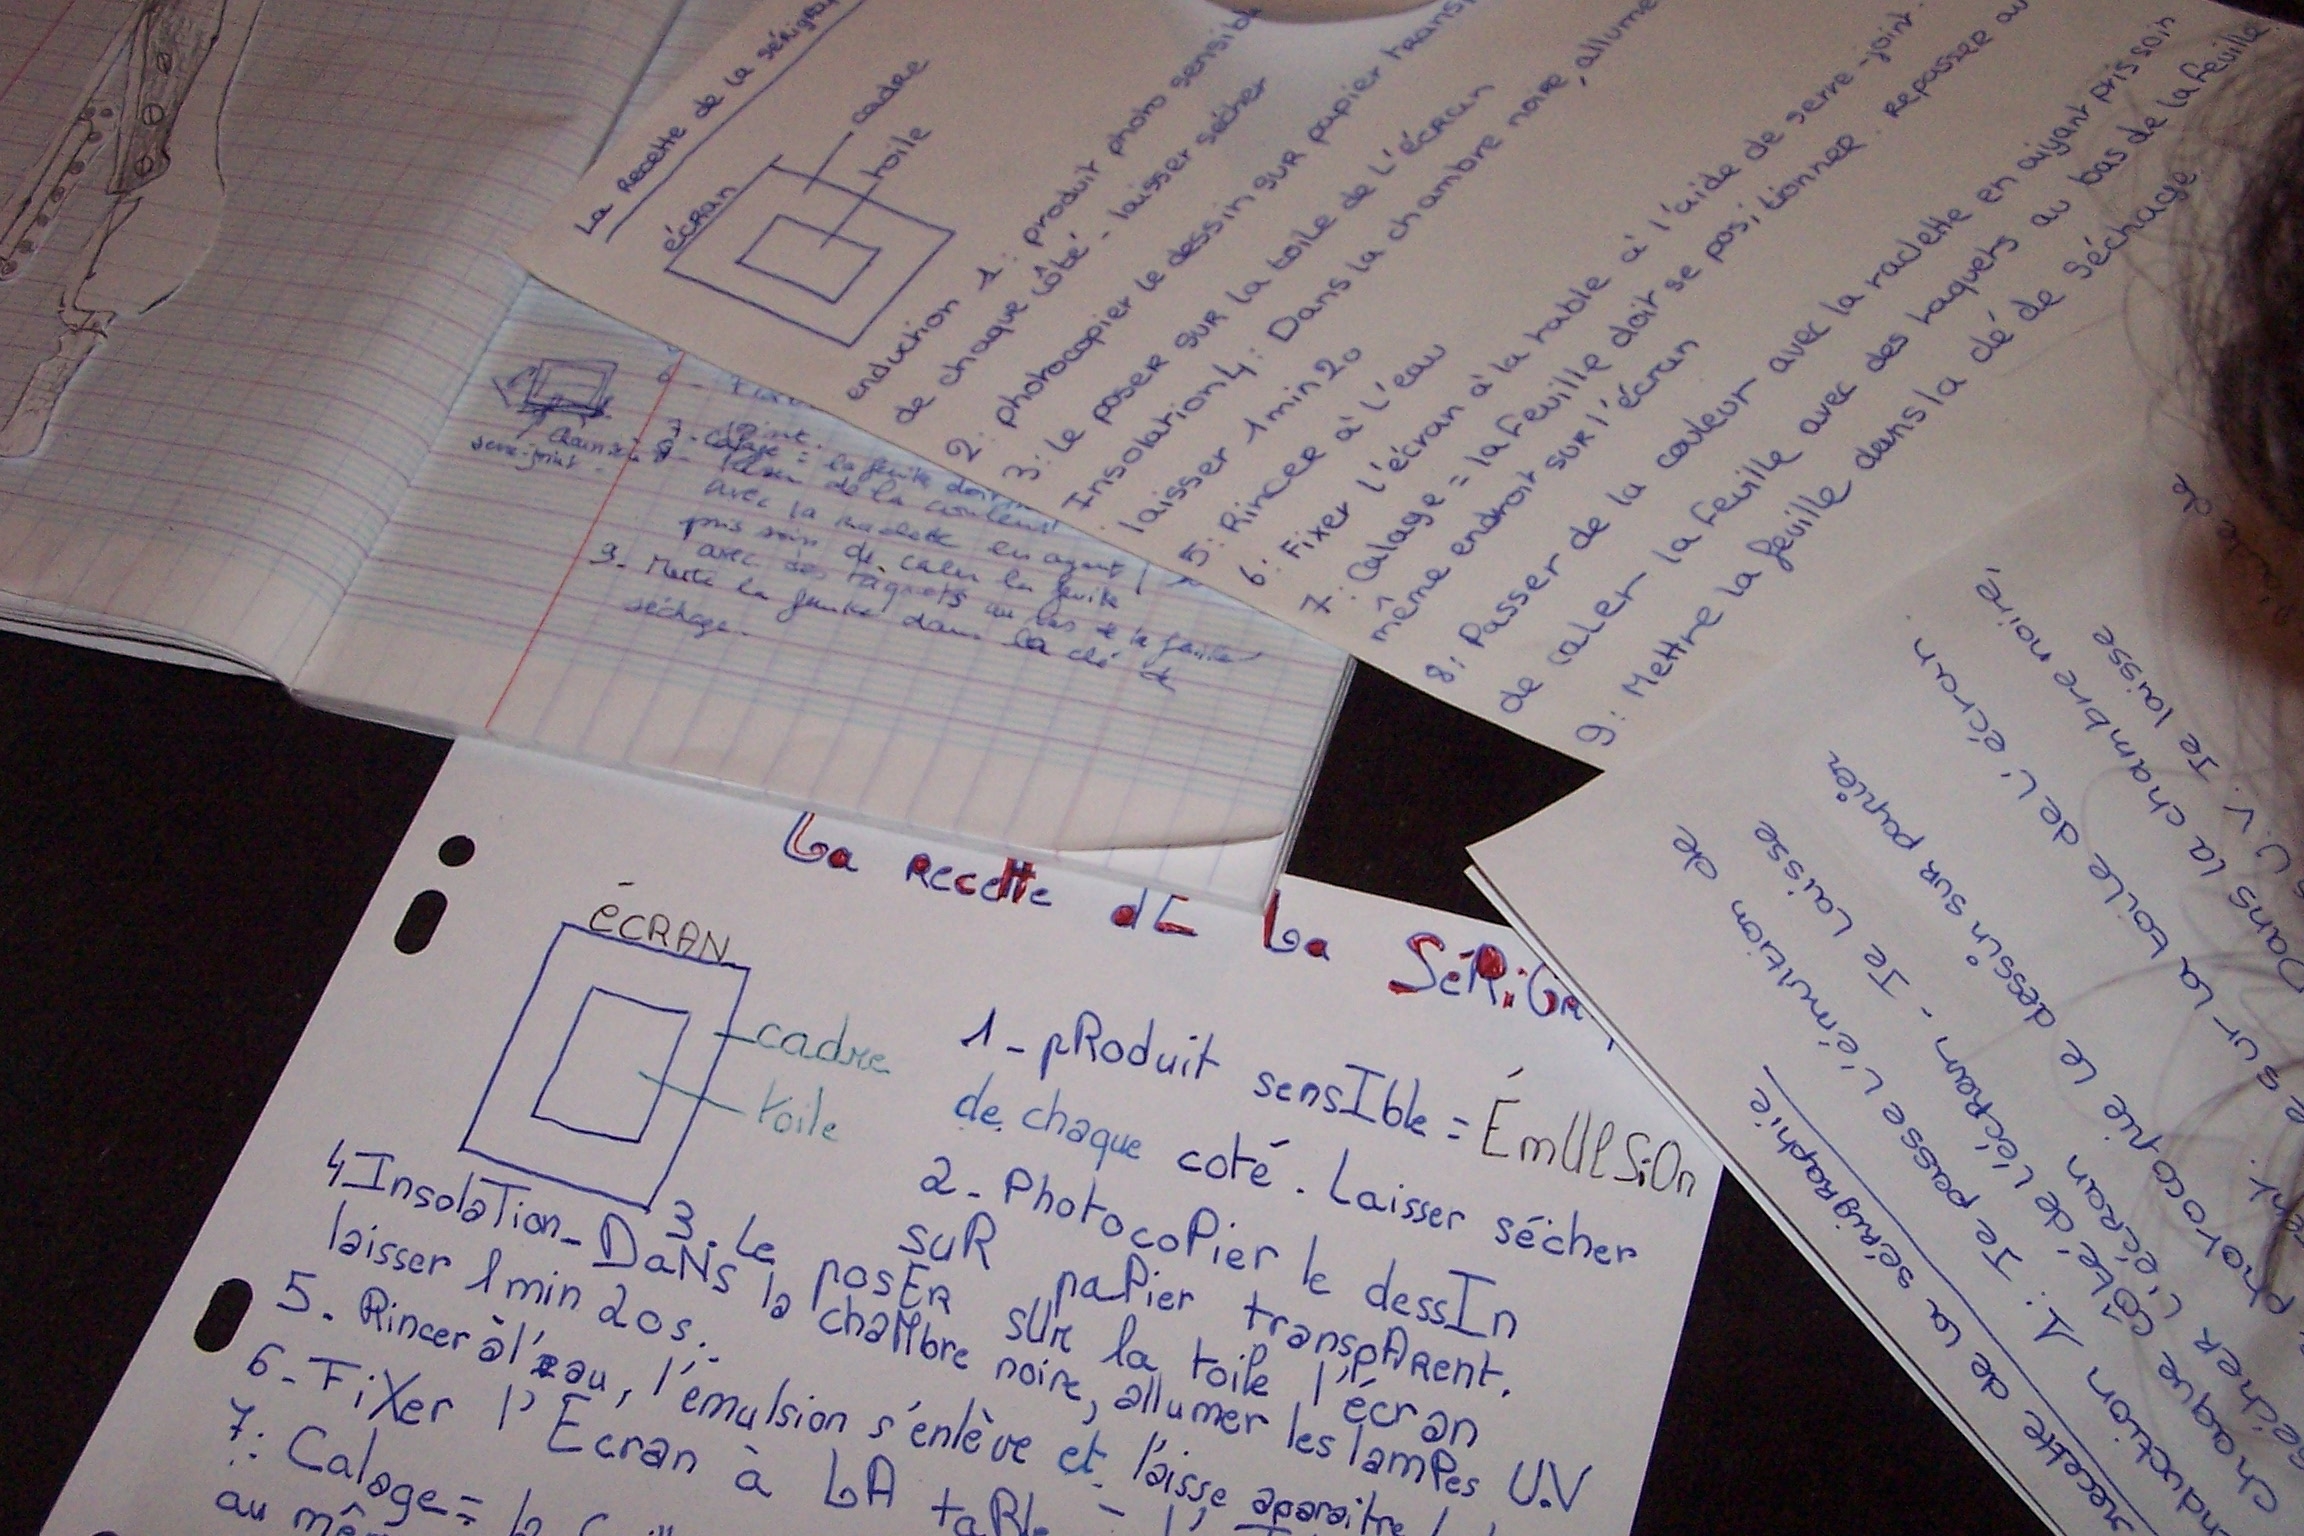 La Recette de la sérigrap
écran
cadre
toile
enduction 1: produit photo sensibl
de chaque côté - laisser sécher
2: photocopier le dessin sur papier transp
3: le poser sur la toile de l'écran
Insolation 4: Dans la chambre noire, allume
laisser 1min20
5: Rincer à l'eau
6: Fixer l'écran à la table à l'aide de serre-joint.
7: Calage = la feuille doit se positionner. repasser au
même endroit sur l'écran
8: Passer de la couleur avec la raclette en aiyant pris soin
de caler la feuille avec des taquets au bas de la feuille
9: Mettre la feuille dans la clé de séchage
joint.
7- Calage = la feuille doit
serre-joint
8- de la couleur
avec la raclette en ayant
pris soin de caler la feuille
avec des taquets au bas de la feuille
9- Mettre la feuille dans la clé de
séchage.
La recette dE La SéRiGR
ÉCRAN
cadre
toile
1- pRoduit sensIble = ÉmUlSiOn
de chaque coté. Laisser sécher
2- PhotocoPier le dessIn
suR paPier transpARent.
3. Le posER sUR la toile l'écran
4 InsolaTion - DaNs la chaMbre noire, allumer les lamPes U.V
laisser 1min 20s.
5. Rincer à l'eau, l'émulsion s'enlève et l'aisse aparaitre
6- FiXer l'Ecran à LA taBle
7: Calage =
au mê
recette de la sérigraphie
nduction 1: Je passe l'émultion de
chaque côté de l'écran - Je laisse
sécher l'écran
photocopie le dessin sur papier
ent.
e sur la toile de l'écran
Dans la chambre noire
U.V. Je laisse